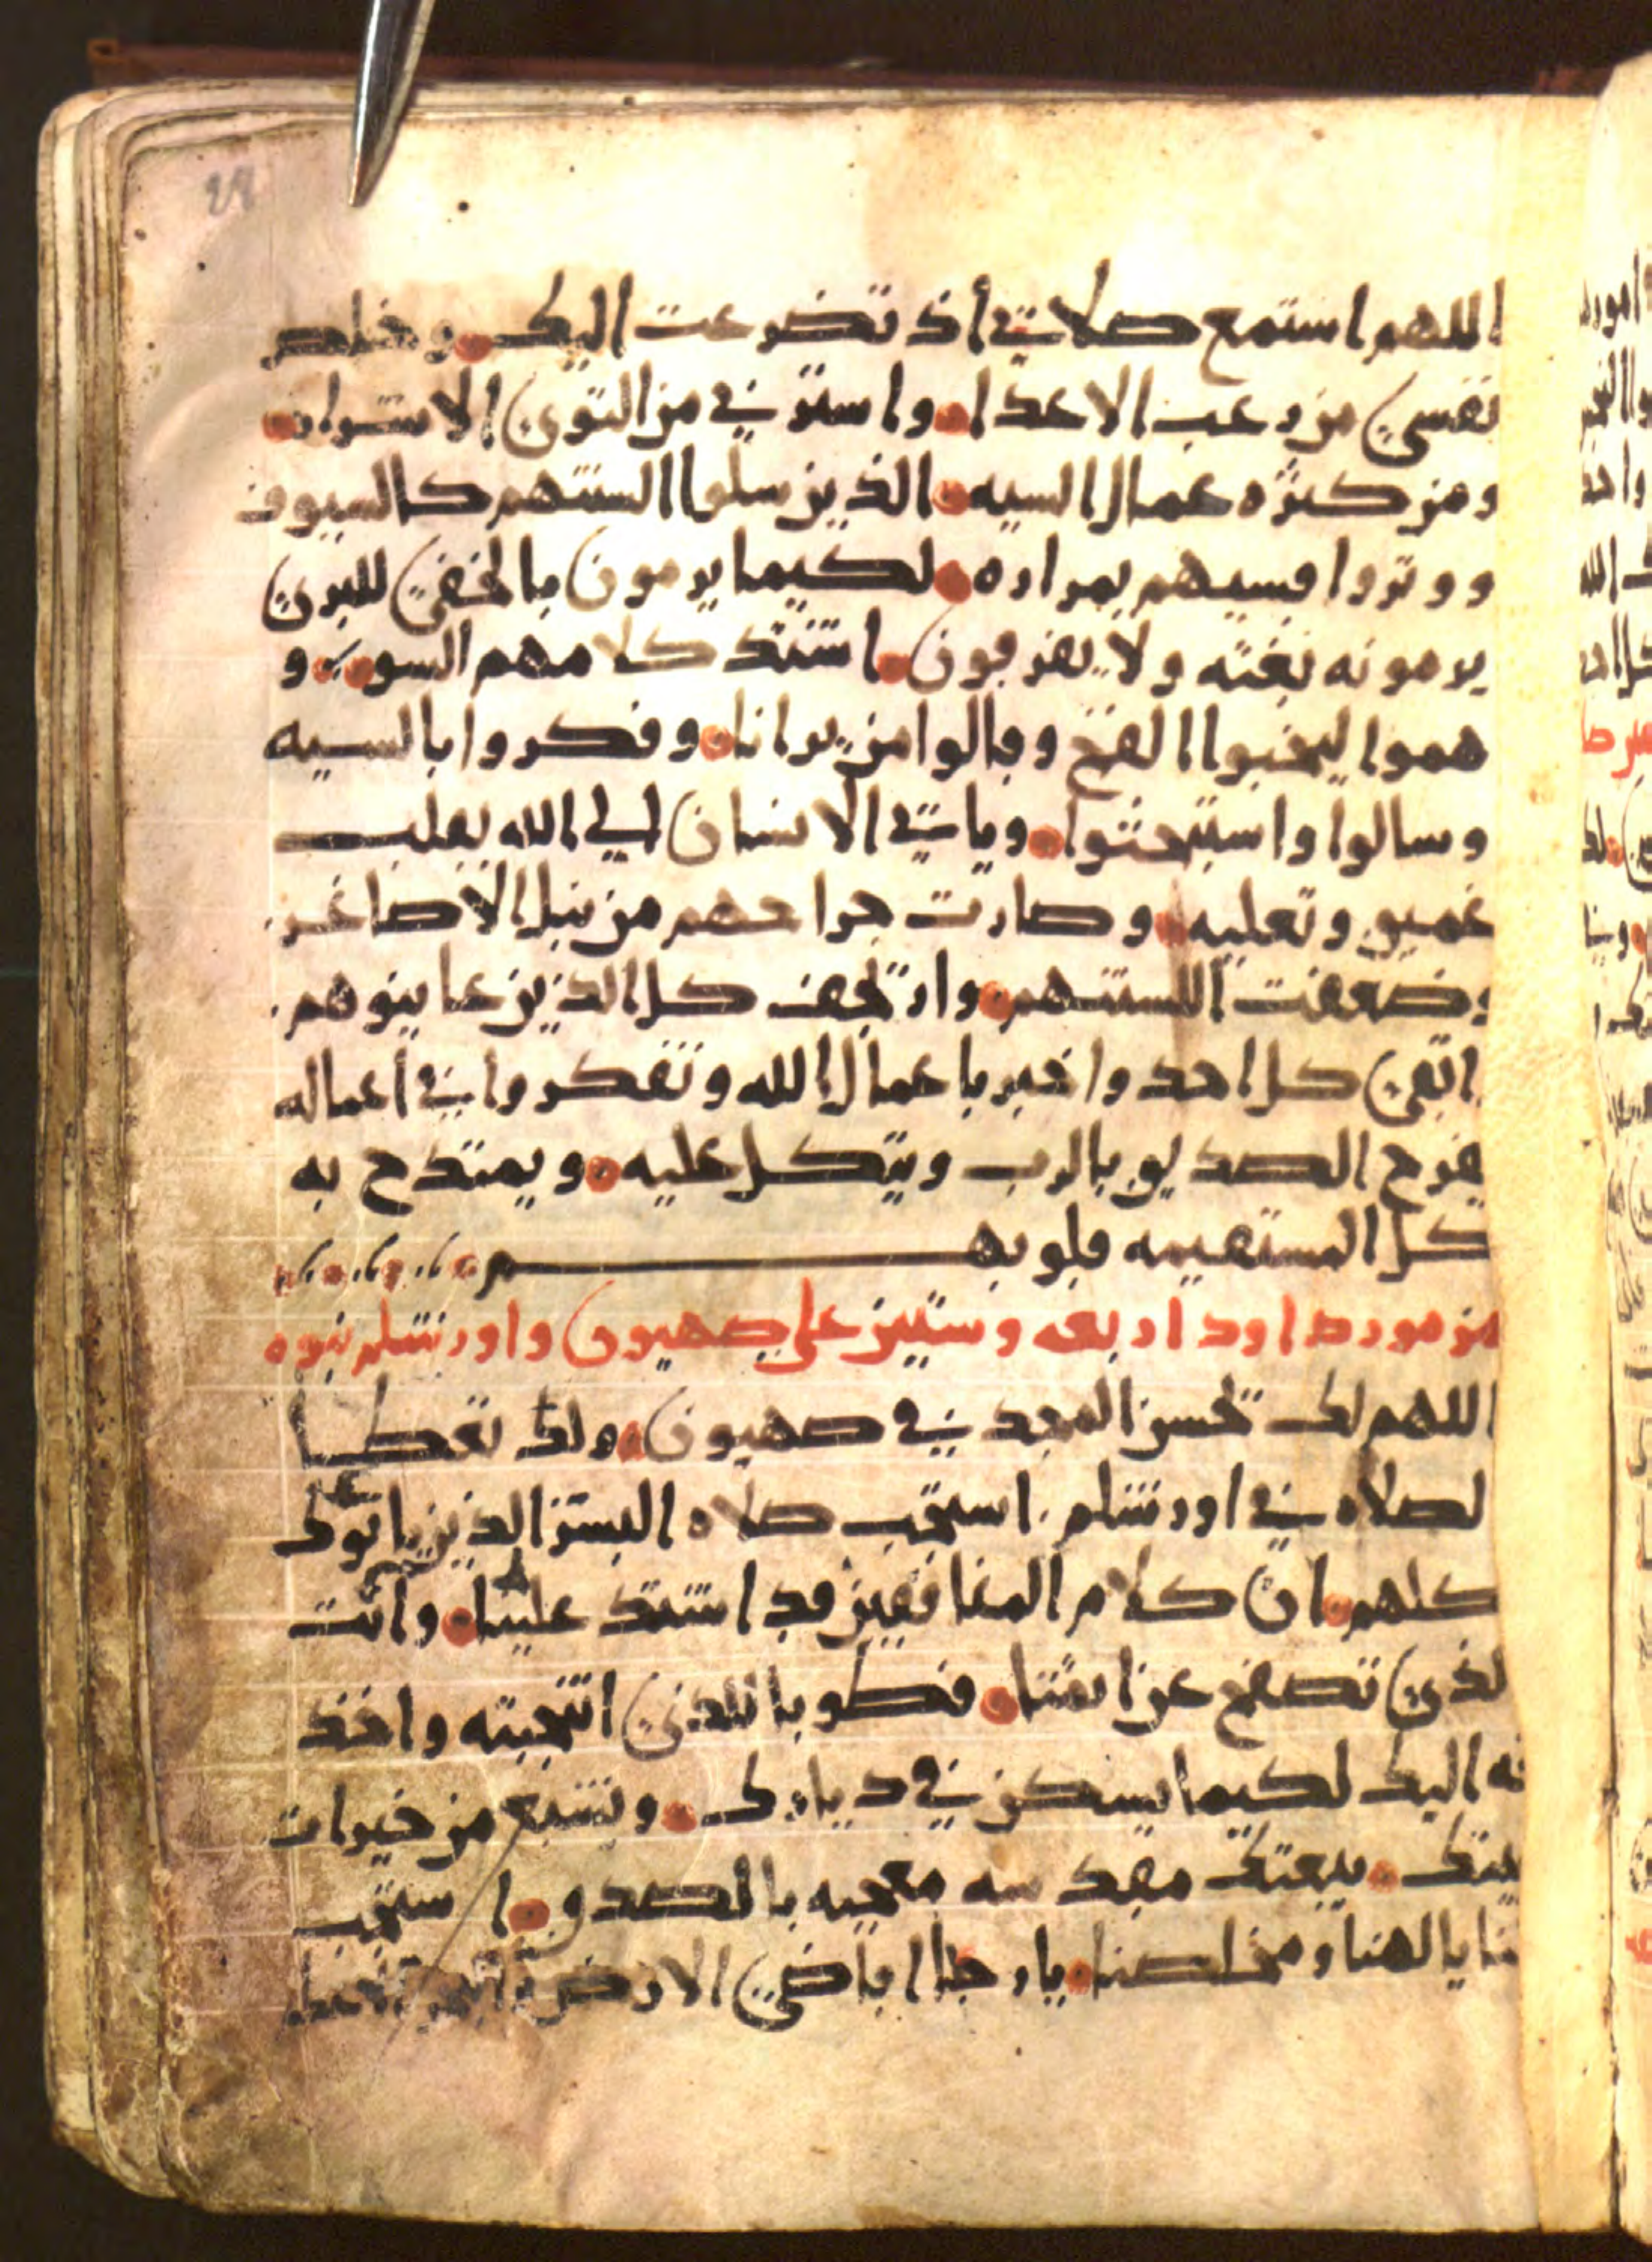 اللهم استمع صلاتي أذ تضرعت اليك • وخلص
نفسي من رعب الاعدا • واسترني من التوى الاشرار •
ومن كثره عمال السيه • الذين سلوا السنتهم كالسيوف
ووتروا قسيهم بمراره • لكيما يرمون بالخفى للبرى
يرمونه بغته ولا يفرقون • اشتد كلامهم السو • و
هموا ليخبوا الفخ وقالوا من يرانا • وفكروا بالسيه
وسالوا واستبحثوا • وياتي الانسان الي الله بقلب
عميق وتعليه • وصارت جراحهم من نبل الاصاغر
وضعفت السنتهم • وارتجف كل الذين عاينوهم
اتقى كل احد واخبر باعمال الله وتفكروا في أعماله
يفرح الصديق بالرب ويتكل عليه • ويمتدح به
كل المستقيمه قلوبهم
مزمور داود اربعه وستين على صهيون واورشلم نبوه
اللهم لك تحسن المجد في صهيون • ولك تعطا
لصلاه في اورشلم . استجب صلاه البشر الذين ياتوك
كلهم • ان كلام المنافقين قد اشتد علينا • وانت
لذى تصفح عن اثمنا • فطوبا للذى انتجبته واخذ
ته اليك لكيما يسكن في ديارك • ونشبع من خيرات
بيتك • بيعتك مقدسه معجبه بالصدق • استجب
لنا يا الهنا ومخلصنا • يا رجا اقاضى الارض